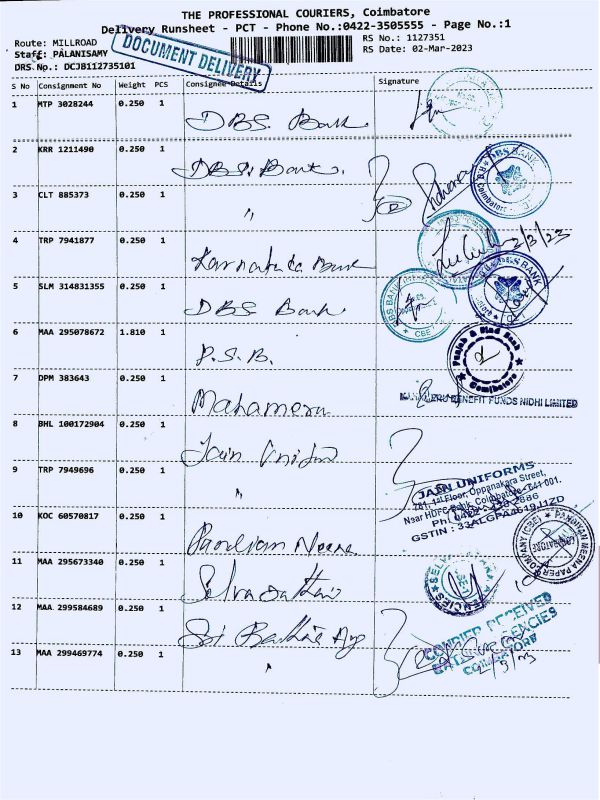 THE PROFESSIONAL COURIERS, Coimbatore
Delivery Runsheet - PCT - Phone No.:0422-3505555 - Page No.:1
Route: MILLROAD
Staff: PALANISAMY
DRS No.: DCJB112735101
DOCUMENT DELIVERY
RS No.: 1127351
RS Date: 02-Mar-2023
S No Consignment No Weight PCS Consignee Details Signature
1 MTP 3028244 0.250 1 DBS. Bank
2 KRR 1211490 0.250 1 DBS. Bank.
DBS BANK
3 CLT 885373 0.250 1 "
4 TRP 7941877 0.250 1 Karnataka Bank 2/3/23
5 SLM 314831355 0.250 1 DBS Bank
DBS BANK
CBE
6 MAA 295078672 1.810 1 P.S.B.
Punjab & Sind Bank
Coimbatore
7 DPM 383643 0.250 1 Mahameru
BENEFIT FUNDS NIDHI LIMITED
8 BHL 100172904 0.250 1 Jain Uniform
9 TRP 7949696 0.250 1 "
JAIN UNIFORMS
1st Floor, Oppanakara Street,
Near HDFC Bank, Coimbatore-641 001.
GSTIN : 33ALGPA4619J1ZD
10 KOC 60570817 0.250 1 Pandiyan Meena
PANDIYAN MEENA PAPER COMPANY (CBE)
11 MAA 295673340 0.250 1
12 MAA 299584689 0.250 1 Sri
COURIER RECEIVED
AGENCIES
COIMBATORE
2/3/23
13 MAA 299469774 0.250 1 "